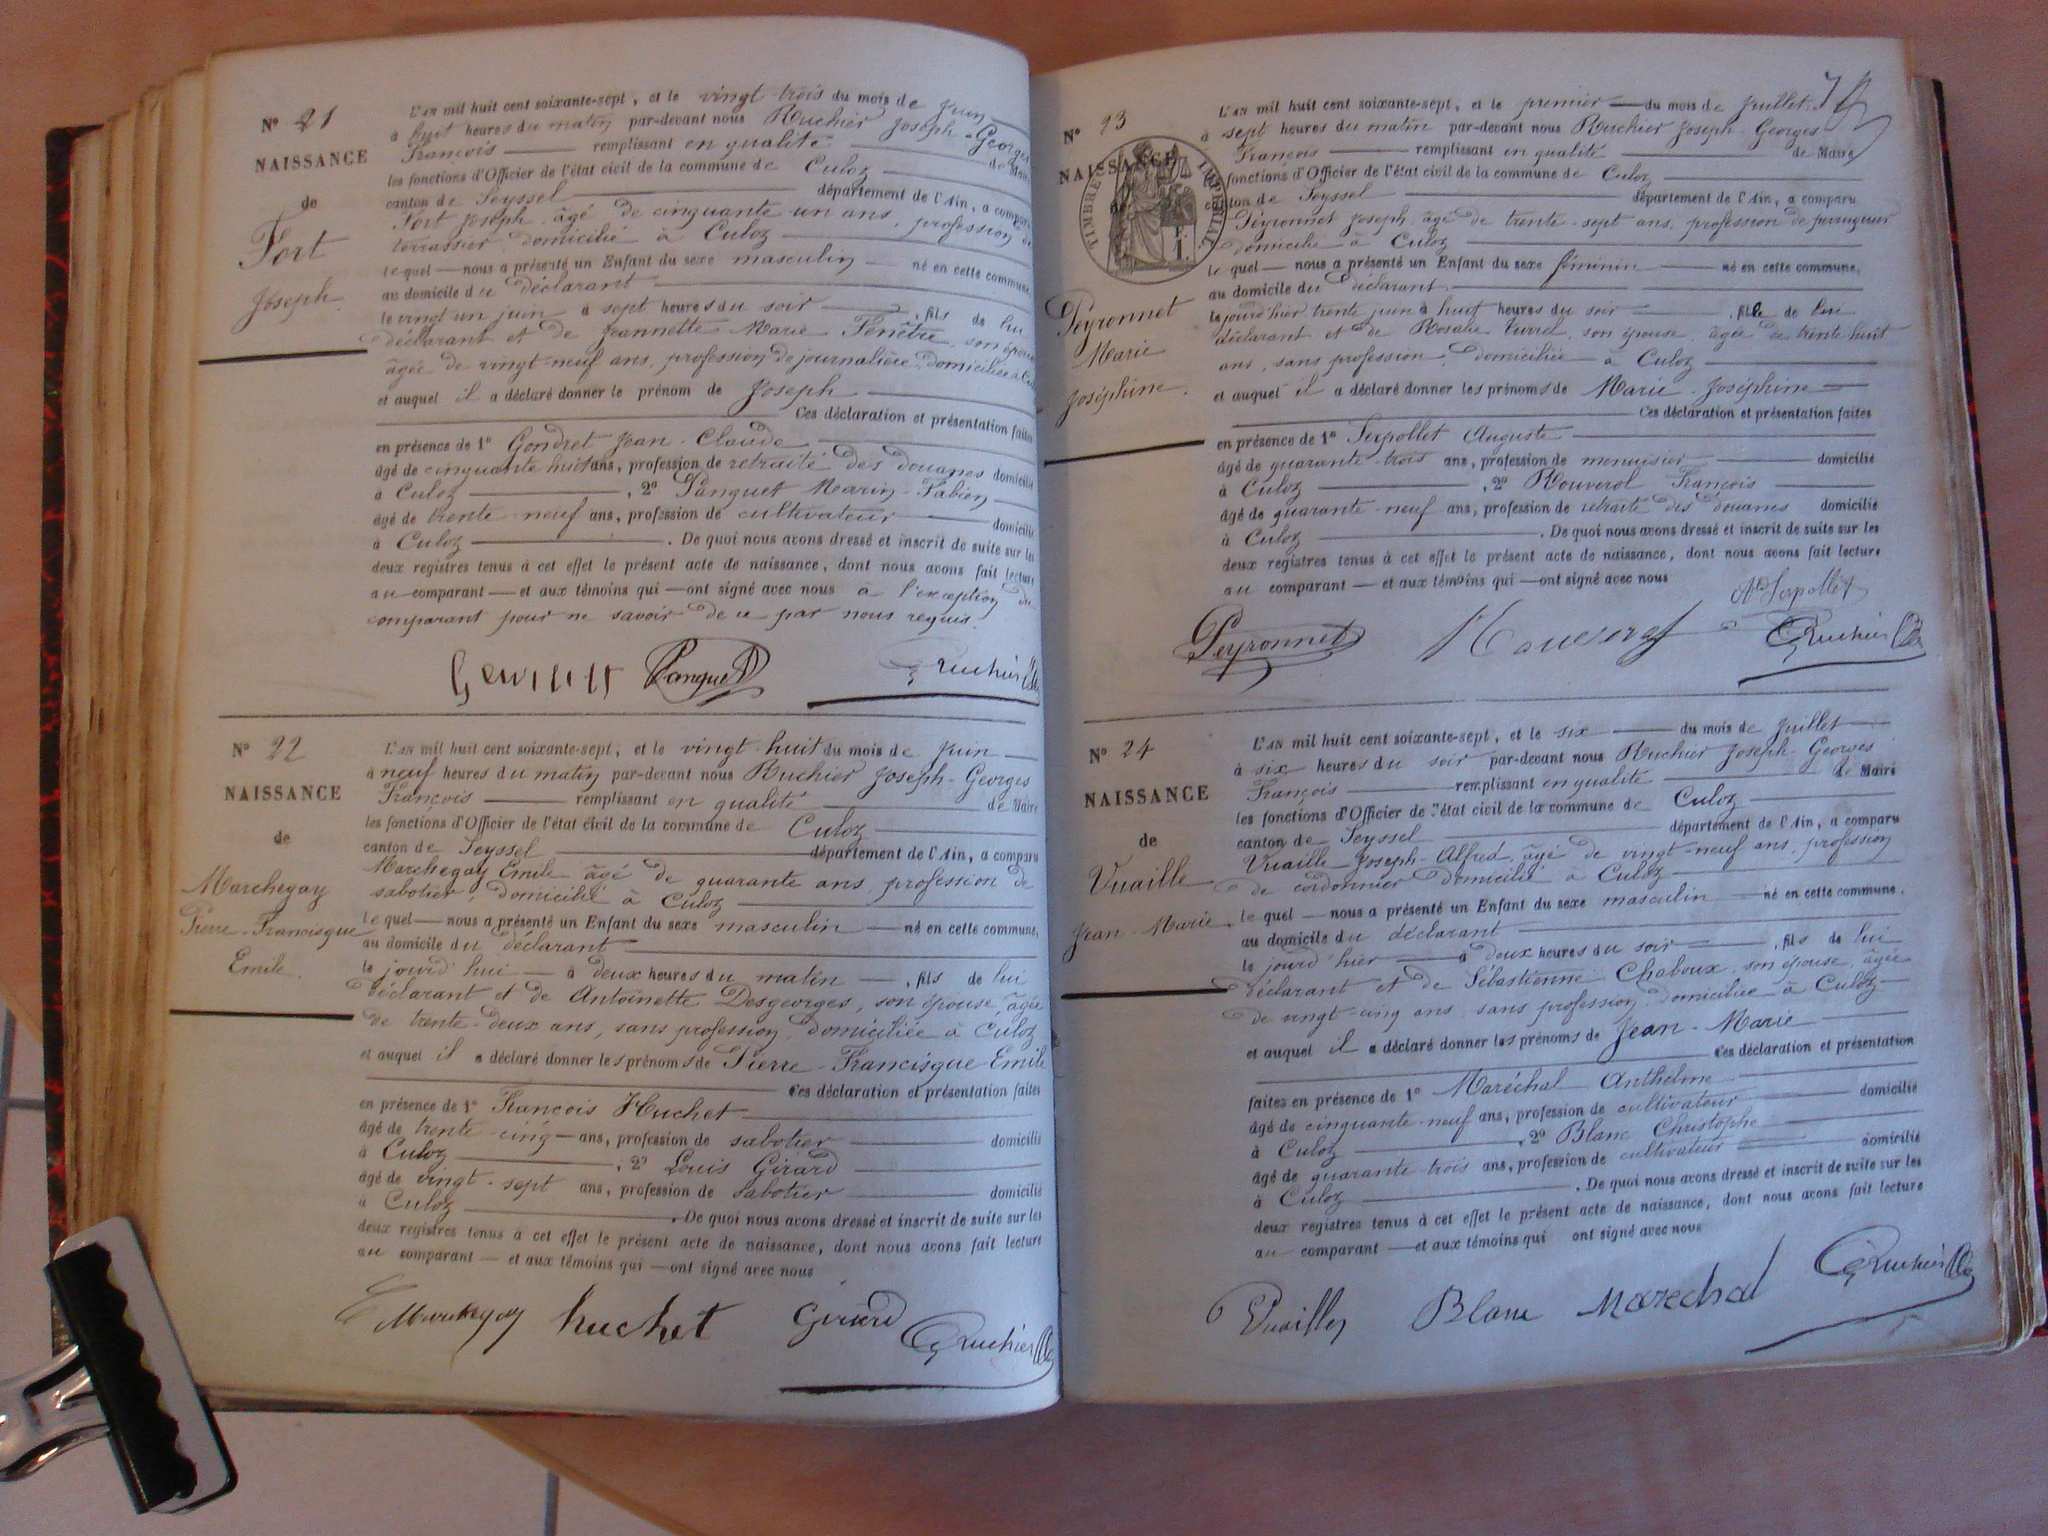 N° 21
NAISSANCE
de
Fort
Joseph
L'AN mil huit cent soixante-sept, et le vingt trois du mois de Juin
à huit heures du matin par-devant nous Ruchier Joseph-Georges
François remplissant en qualité de Maire
les fonctions d'Officier de l'état civil de la commune de Culoz
canton de Seyssel département de l'Ain, a comparu
Fort Joseph âgé de cinquante un ans, profession de
terrassier domicilié à Culoz
le quel nous a présenté un Enfant du sexe masculin né en cette commune,
au domicile du déclarant
le vingt un juin à sept heures du soir, fils de lui
déclarant et de Jeannette Marie Fenêtre, son épouse
âgée de vingt-neuf ans, profession de journalière, domiciliée à
et auquel il a déclaré donner le prénom de Joseph
Ces déclaration et présentation faites
en présence de 1° Gondret Jean-Claude
âgé de cinquante huit ans, profession de retraité des douanes domicilié
à Culoz, 2° Panguet Marin-Fabien
âgé de trente-neuf ans, profession de cultivateur domicilié
à Culoz. De quoi nous avons dressé et inscrit de suite sur les
deux registres tenus à cet effet le présent acte de naissance, dont nous avons fait lecture
au comparant et aux témoins qui ont signé avec nous à l'exception du
comparant pour ne savoir de ce par nous requis.
Panguet Ruchier
N° 22
NAISSANCE
de
Marchegay
Pierre-Francisque
Emile.
L'AN mil huit cent soixante-sept, et le vingt-huit du mois de Juin
à neuf heures du matin par-devant nous Ruchier Joseph-Georges
François remplissant en qualité de Maire
les fonctions d'Officier de l'état civil de la commune de Culoz
canton de Seyssel département de l'Ain, a comparu
Marchegay Emile âgé de quarante ans, profession de
sabotier, domicilié à Culoz
le quel nous a présenté un Enfant du sexe masculin né en cette commune,
au domicile du déclarant
le jourd'hui à deux heures du matin, fils de lui
déclarant et de Antoinette Desgeorges, son épouse, âgée
de trente-deux ans, sans profession, domiciliée à Culoz
et auquel il a déclaré donner les prénoms de Pierre-Francisque Emile
Ces déclaration et présentation faites
en présence de 1° François Huchet
âgé de trente-cinq ans, profession de sabotier domicilié
à Culoz, 2° Louis Girard
âgé de vingt-sept ans, profession de sabotier domicilié
à Culoz. De quoi nous avons dressé et inscrit de suite sur les
deux registres tenus à cet effet le présent acte de naissance, dont nous avons fait lecture
au comparant et aux témoins qui ont signé avec nous
E Marchegay huchet Girard Ruchier
N° 23
NAISSANCE
TIMBRE IMPERIAL
Peyronnet
Marie
Joséphine.
L'AN mil huit cent soixante-sept, et le premier du mois de Juillet
à sept heures du matin par-devant nous Ruchier Joseph-Georges
François remplissant en qualité de Maire
les fonctions d'Officier de l'état civil de la commune de Culoz
canton de Seyssel département de l'Ain, a comparu
Peyronnet Joseph âgé de trente-sept ans, profession de perruquier
domicilié à Culoz
le quel nous a présenté un Enfant du sexe féminin né en cette commune,
au domicile du déclarant
le jourd'hier trente juin à huit heures du soir, fille de lui
déclarant et de Rosalie son épouse, âgée de trente huit
ans, sans profession, domiciliée à Culoz
et auquel il a déclaré donner les prénoms de Marie-Joséphine
Ces déclaration et présentation faites
en présence de 1° Serpollet Auguste
âgé de quarante-trois ans, profession de menuisier domicilié
à Culoz, 2° Rouverol François
âgé de quarante-neuf ans, profession de retraité des douanes domicilié
à Culoz. De quoi nous avons dressé et inscrit de suite sur les
deux registres tenus à cet effet le présent acte de naissance, dont nous avons fait lecture
au comparant et aux témoins qui ont signé avec nous
Serpollet
Peyronnet Rouverol Ruchier
N° 24
NAISSANCE
de
Vuaille
Jean-Marie
L'AN mil huit cent soixante-sept, et le six du mois de Juillet
à six heures du soir par-devant nous Ruchier Joseph-Georges
François remplissant en qualité de Maire
les fonctions d'Officier de l'état civil de la commune de Culoz
canton de Seyssel département de l'Ain, a comparu
Vuaille Joseph-Alfred, âgé de vingt-neuf ans, profession
de cordonnier domicilié à Culoz
le quel nous a présenté un Enfant du sexe masculin né en cette commune.
au domicile du déclarant
le jourd'hier à deux heures du soir, fils de lui
déclarant et de Sébastienne Chaboux, son épouse, âgée
de vingt-cinq ans, sans profession, domiciliée à Culoz
et auquel il a déclaré donner les prénoms de Jean-Marie
Ces déclaration et présentation
faites en présence de 1° Maréchal Anthelme
âgé de cinquante-neuf ans, profession de cultivateur domicilié
à Culoz, 2° Blanc Christophe
âgé de quarante-trois ans, profession de cultivateur domicilié
à Culoz. De quoi nous avons dressé et inscrit de suite sur les
deux registres tenus à cet effet le présent acte de naissance, dont nous avons fait lecture
au comparant et aux témoins qui ont signé avec nous
Vuaille Blanc Marechal Ruchier